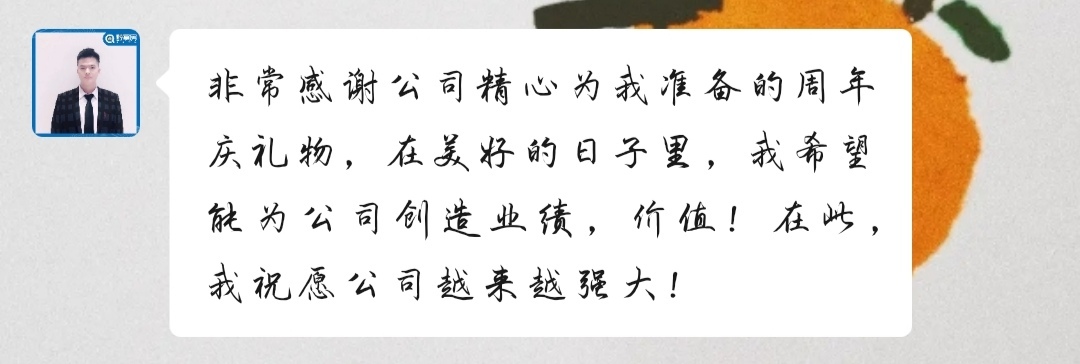 非常感谢公司精心为我准备的周年
庆礼物，在美好的日子里，我希望
能为公司创造业绩，价值！在此，
我祝愿公司越来越强大！